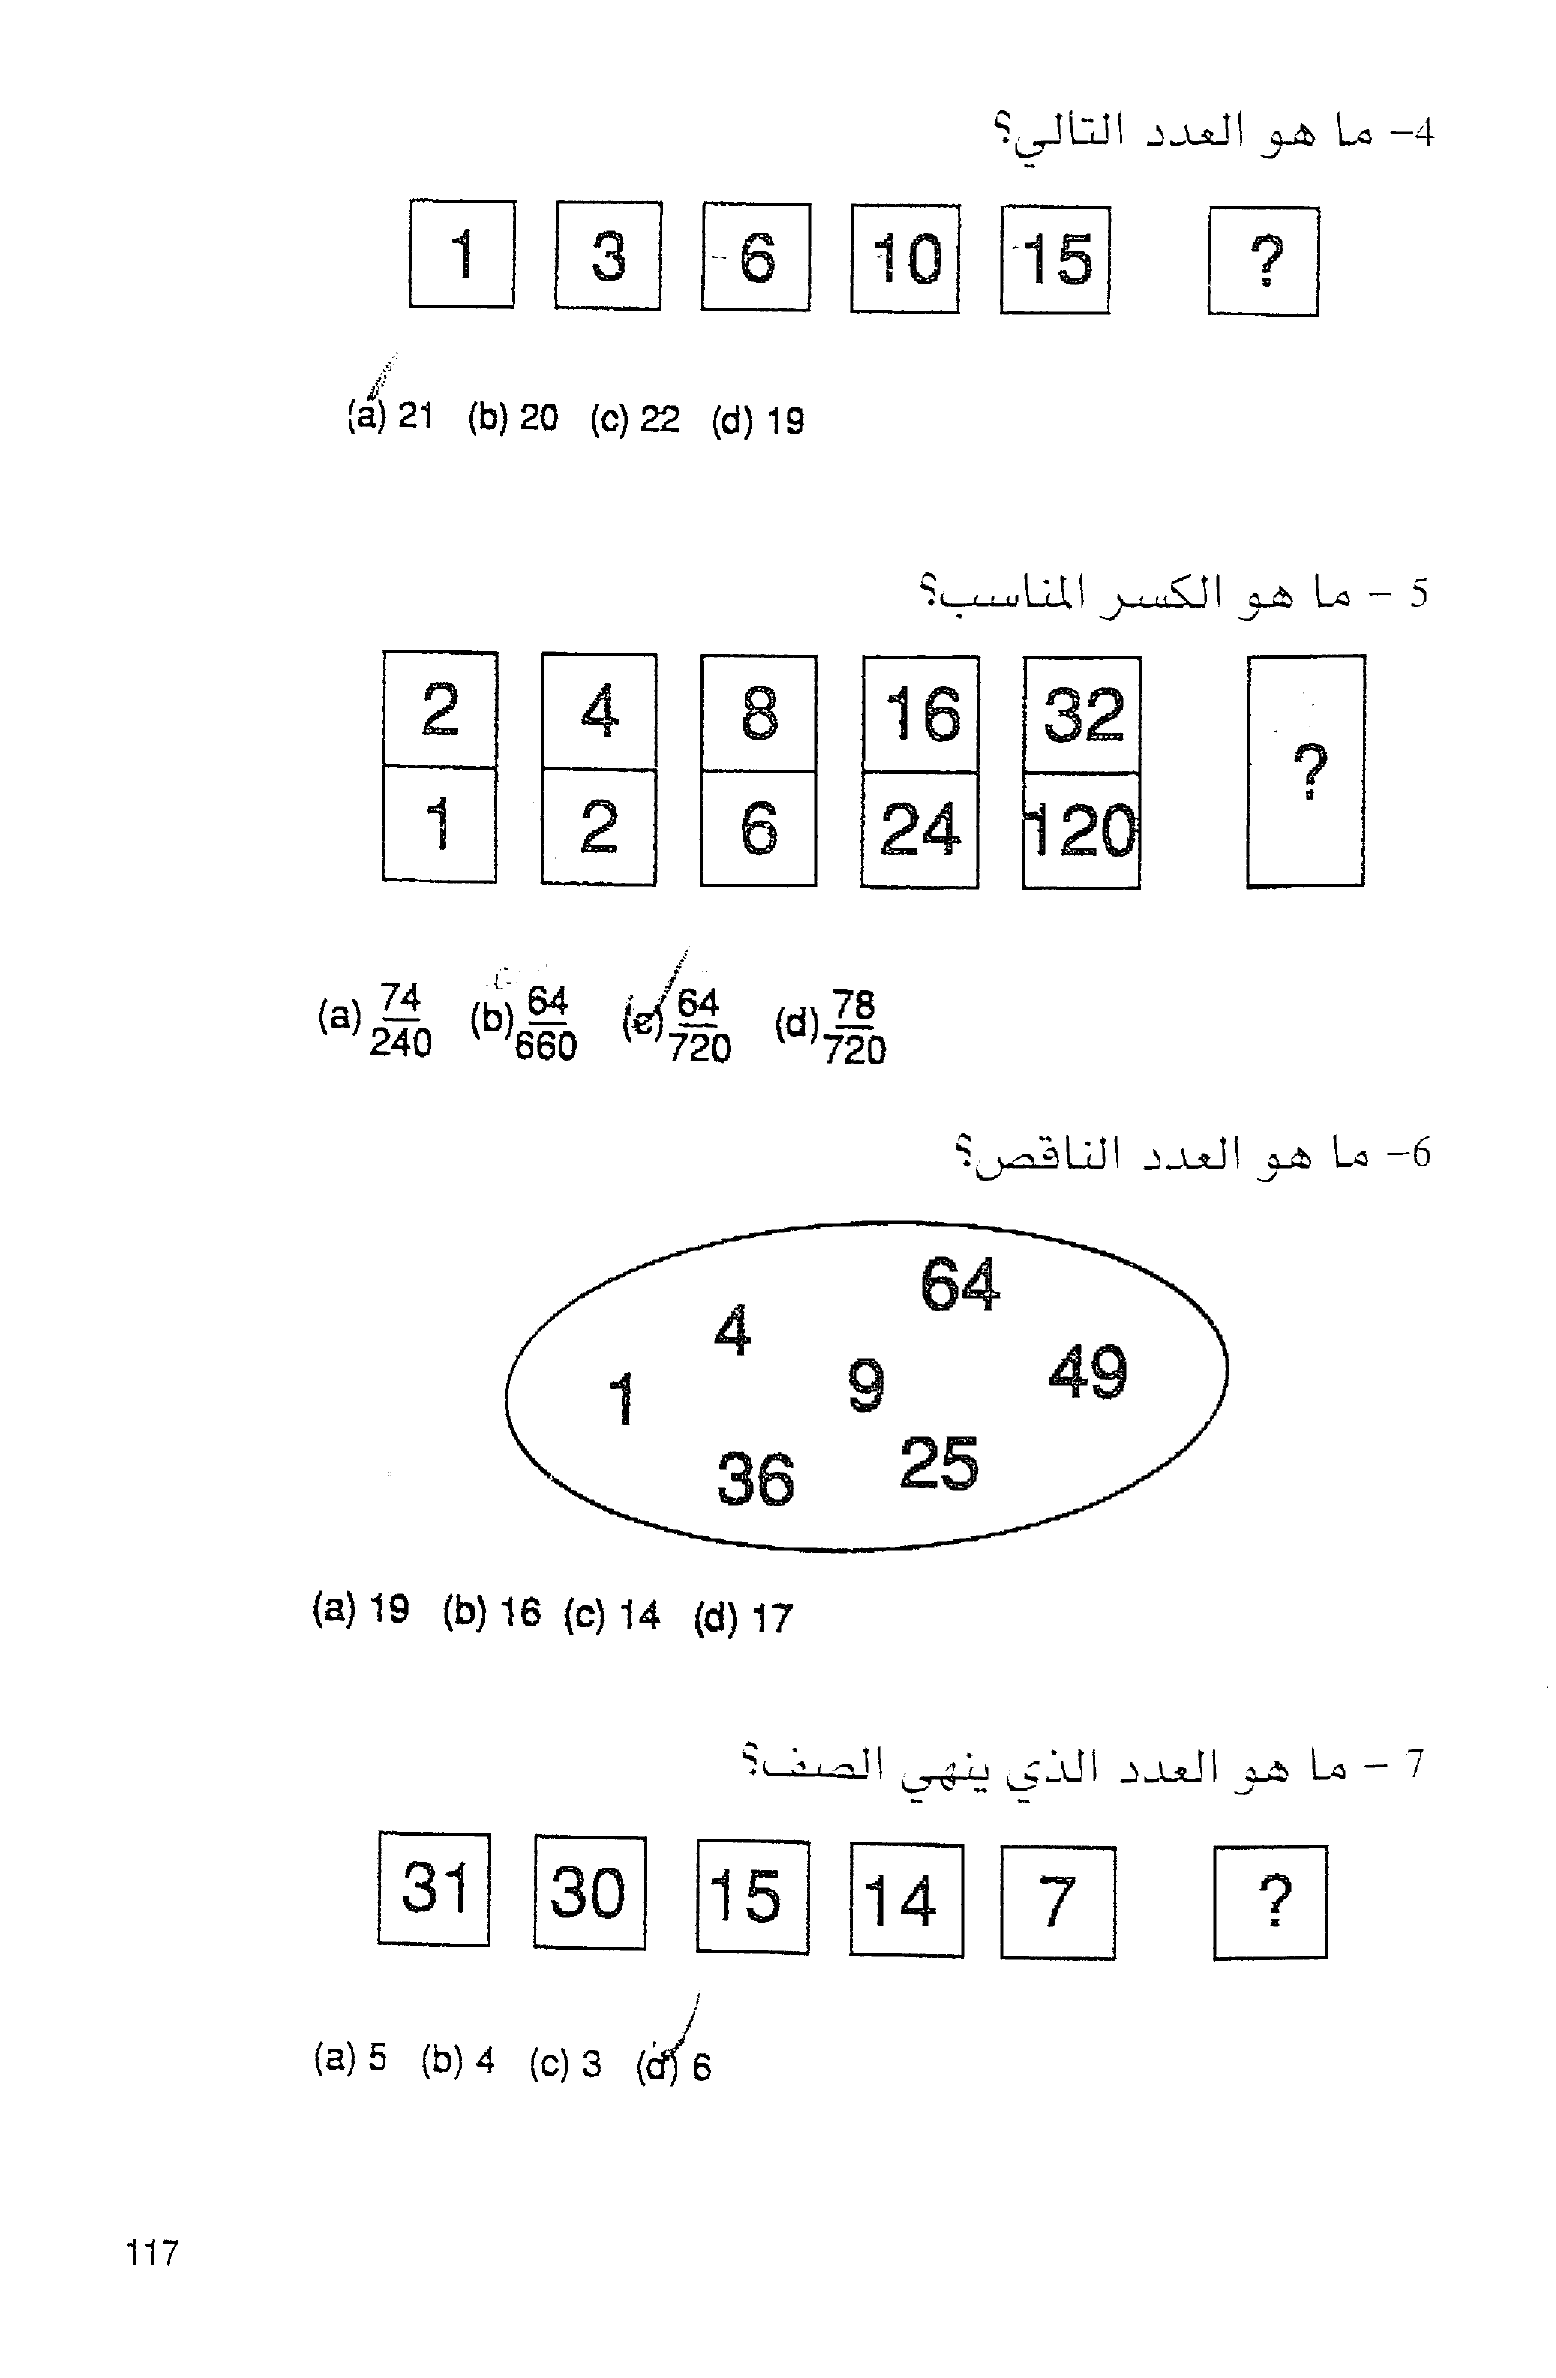 4- ما هو العدد التالي؟
1 3 6 10 15 ?
(a) 21 (b) 20 (c) 22 (d) 19
5 - ما هو الكسر المناسب؟
2 4 8 16 32 ?
1 2 6 24 120
(a) 74/240 (b) 64/660 (c) 64/720 (d) 78/720
6- ما هو العدد الناقص؟
64
4
9 49
1
25
36
(a) 19 (b) 16 (c) 14 (d) 17
7 - ما هو العدد الذي ينهي الصف؟
31 30 15 14 7 ?
(a) 5 (b) 4 (c) 3 (d) 6
117